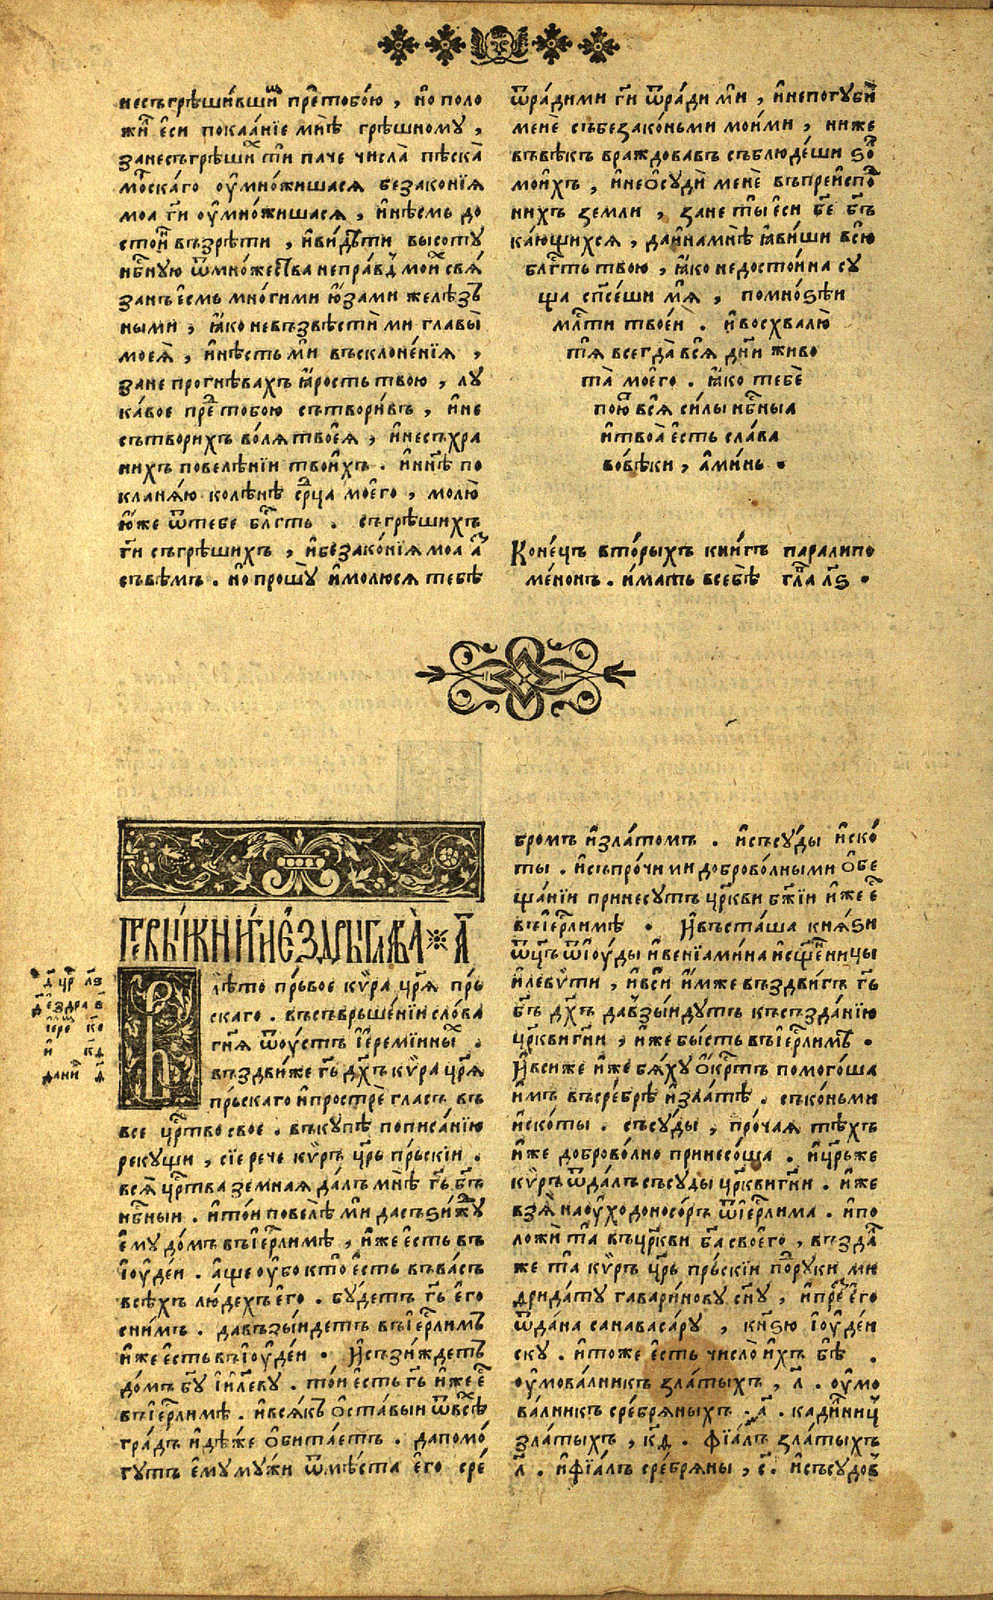 несъгрѣши́вши́м пре́тобо́ю , но́ поло
жи́л є҆си покаа́нїе мнѣ̀ грѣ́шному ,
занесъгрѣши́х ти паче числа̀ пѣска̀
мо́рска́го оу҆мно́жишася безако́нїѧ
моа гї҃и оу҆мно́жишася , и҆нѣ́смь до
сто́и҆н възрѣ́ти , и҆ви́дѣти высоту
нб҃ную ѿмно́жества непра́вд мои́х свѧ́
занъ є҆смь мно́гими ю҆́зами желѣ́зъ
ными , ꙗ҆́ко невъзвѣ́сти́ ми главы̀
моеѧ̀ , и҆нѣ́сть мѝ въсклоне́нїѧ ,
зане прогнѣ́вахъ ꙗ҆́рость твою , лу
ка́вое пре́д тобою сътвори́въ , и҆не
сътворихъ во́ля твоє́ѧ , и҆несъхра
нихъ повелѣ́нїи твои҆́хъ . и҆нн҃ѣ по
кланя́ю колѣ́нѣ ср҃ца моє҆го , молю̀
ю҆́же ѿтебе бл҃гть . съгрѣ́шихъ
гї҃и съгрѣ́шихъ , и҆безако́нїѧ моа а҆́з
съвѣ́мъ . но́ прошу̀ и҆молюся тебѣ̀
ѿра́дими гї҃и ѿра́ди ми , и҆непогуби́
менѐ съ безако́ньми мои́ми , ниже
въвѣ́къ враждова́въ съблюде́ши ѕо́л
мои҆́хъ , и҆неѻ҆суди̂ менѐ въпреи҆спо́д
нихъ земли , зане ты є҆си бг҃ъ бг҃ъ
ка́ющихся , даи҆на мнѣ̀ ꙗ҆ви́ши всю̀
бл҃гть твою , ꙗ҆́ко недосто́ина су
ща сп҃се́ши мѧ̀ , помно́ѕѣи
мл҃ти твое́и . и҆восхвалю̀
тѧ̀ всегда̀ всѧ̀ дн҃и живо
та̀ моє҆го . ꙗ҆́ко тебѐ
пою́т всѧ̀ си́лы нб҃ныа
и҆твоа̀ є҆сть сла́ва
вове́ки , а҆ми́нь .
Коне́цъ вто́рыхъ кни́гъ паралипо
ме́нонъ . и҆мать всебѣ̀ гл҃а л҃ѕ .
Пе́рвыѧ кни́ги є҆́здры глава̀ а҃
д҃ цр҃ л҃ѕ
є҆́здра в
і҆ере́м к҃є
и҆ к҃д
дани́л д҃
Въ лѣ́то пръ́вое кѵ́ра цр҃ѧ пръ́
скаго . въсъврьше́нїи сло́ва
гн҃ѧ ѿоу҆стъ і҆еремі́ины .
въздви́же гь҃ дх҃ъ кѵ́ра цр҃ѧ
пръ́скаго и҆прострѐ гласъ въ
все цр҃тво свое . въку́пѣ пописа́нїю
рекуши , сїе рече кѵ́ръ цр҃ь пръ́скїи .
всѧ̀ цр҃тва земнаѧ да́лъ мнѣ̀ гь҃ бг҃ъ
нб҃ныи . и҆то́и повелѣ̀ мѝ дасъѕи́жду
є҆му до́мъ въі҆ер҃лимѣ , и҆же є҆сть въ
і҆оу҆де́и . а҆ще оу҆бо кто̀ є҆сть въва́съ
всѣ́хъ лю́дехъ є҆го . бу́детъ гь҃ є҆го
сни́мъ . давъзы́идетъ въі҆ер҃лимъ
и҆же є҆сть въі҆оу҆де́и . И҆съзи́ждетъ
до́мъ бг҃у і҆и҃леву . то́и є҆сть гь҃ и҆же є҆́с
въі҆ер҃лимѣ . и҆вся́къ ѻ҆ста́выи ѿвсѣ́х
гра́дъ и҆дѣ́же ѻ҆бита́етъ . дапомо́
гутъ є҆му му́жи ѿмѣ́ста є҆го сре́
бромъ и҆зла́томъ . и҆съсу́ды и҆ско́
ты . и҆съпро́чи ми доброво́лными ѻ҆бе
ща́нїи принесу́тъ цр҃кви бж҃їи и҆же є҆́с
въі҆ер҃лимѣ . И҆въста́ша кня́ѕи
ѿц҃ъ ѿі҆оу́ды и҆венїами́на и҆сщ҃е́нницы
и҆леѵ́ѵти , и҆вси и҆мже въздви́гъ гь҃
бг҃ъ дх҃ъ давзы́идутъ късъзда́нїю
цр҃квигн҃и , и҆же бы́сть въі҆ер҃лимѣ .
И҆вси же и҆же бя́ху ѻ҆́крⷭтъ помого́ша
и҆мъ въсребрѣ̀ и҆зла́тѣ . съко́ньми
и҆ско́ты . съсу́ды , про́чая тѣхъ
и҆же доброво́лно принесо́ша . и҆цр҃ьже
кѵ́ръ ѿда́лъ съсуды цр҃квигн҃и . и҆же
взѧ̀ наоу҆ходоно́соръ ѿі҆ер҃лима . и҆по
ложѝ та̀ въцр҃кви бг҃а своє҆го , възда́с
же та̀ кѵ́ръ цр҃ь пръ́скїи по́д руки ми
дрида́ту гавари́нову сн҃у , и҆пре́д є҆го
ѿда́на санаваса́ру , кн҃ѕю і҆оу҆де́и
ску . и҆тоже є҆сть число̀ и҆хъ бѣ̀ .
оу҆мова́лникъ зла́тыхъ , л҃ . оу҆мо
ва́лникъ сре́бряныхъ , а҃ . кади́лниц
зла́тыхъ , к҃д . фїа́лъ зла́тыхъ
л҃ . и҆фїа́лъ сре́бряны , с҃ . и҆съсудо́в